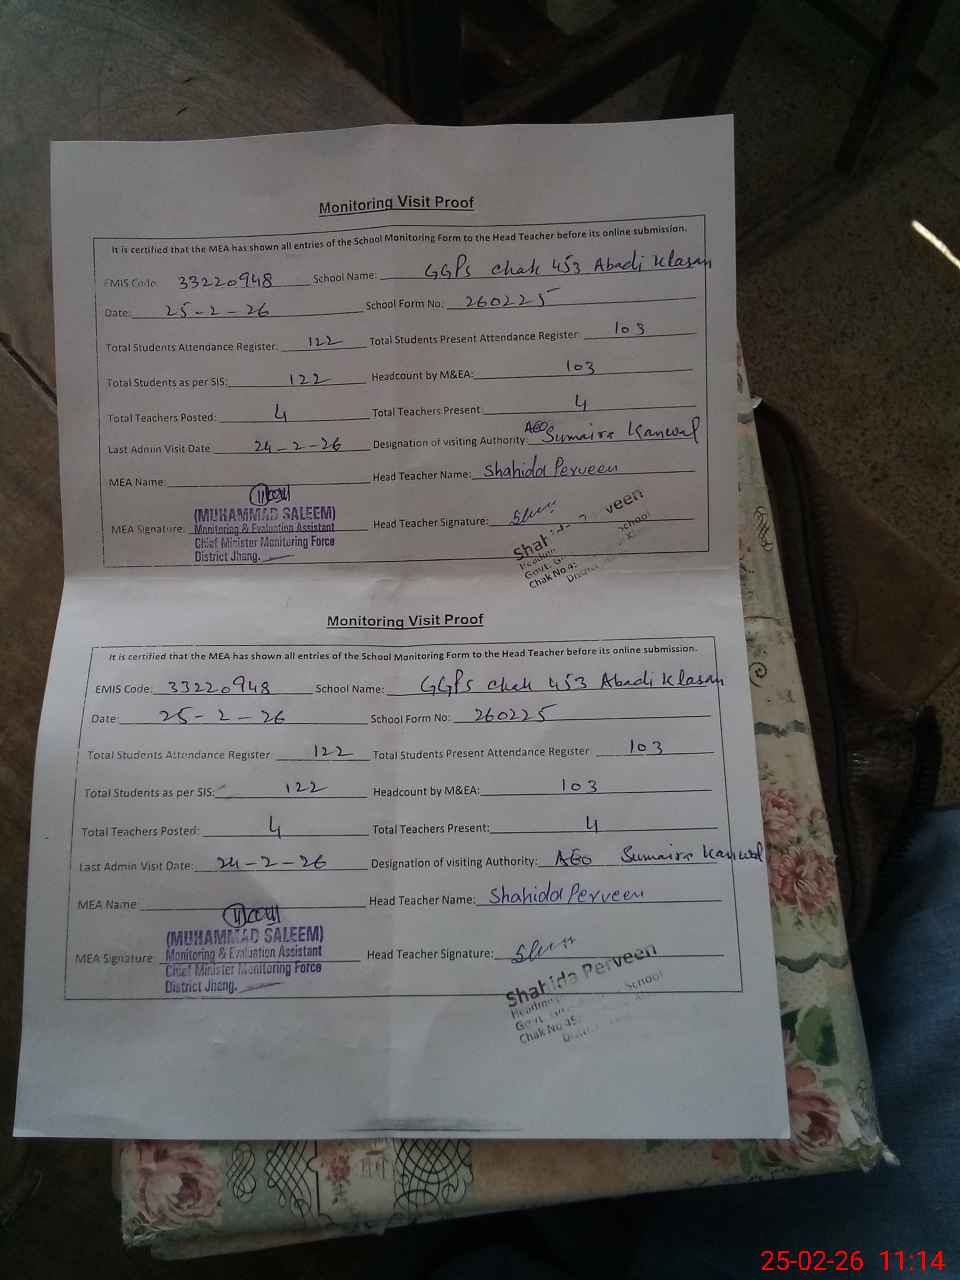 Monitoring Visit Proof
It is certified that the MEA has shown all entries of the School Monitoring Form to the Head Teacher before its online submission.
EMIS Code: 33220948 School Name: GGPS Chak 453 Abadi Klasan
Date: 25-2-26 School Form No: 260225
Total Students Attendance Register: 122 Total Students Present Attendance Register: 103
Total Students as per SIS: 122 Headcount by M&EA: 103
Total Teachers Posted: 4 Total Teachers Present: 4
Last Admin Visit Date 24-2-26 Designation of visiting Authority: AEO Sumaira Kanwal
MEA Name: Head Teacher Name: Shahida Perveen
MEA Signature: Head Teacher Signature:
(MUHAMMAD SALEEM)
Monitoring & Evaluation Assistant
Chief Minister Monitoring Force
District Jhang.
Govt.
Chak No.
School
Monitoring Visit Proof
It is certified that the MEA has shown all entries of the School Monitoring Form to the Head Teacher before its online submission.
EMIS Code: 33220948 School Name: GGPS Chak 453 Abadi Klasan
Date: 25-2-26 School Form No: 260225
Total Students Attendance Register 122 Total Students Present Attendance Register 103
Total Students as per SIS: 122 Headcount by M&EA: 103
Total Teachers Posted: 4 Total Teachers Present: 4
Last Admin Visit Date: 24-2-26 Designation of visiting Authority: AEO Sumaira Kanwal
MEA Name: Head Teacher Name: Shahida Perveen
MEA Signature: Head Teacher Signature:
(MUHAMMAD SALEEM)
Monitoring & Evaluation Assistant
Chief Minister Monitoring Force
District Jhang.
Shahida Perveen
School
Chak No
25-02-26 11:14